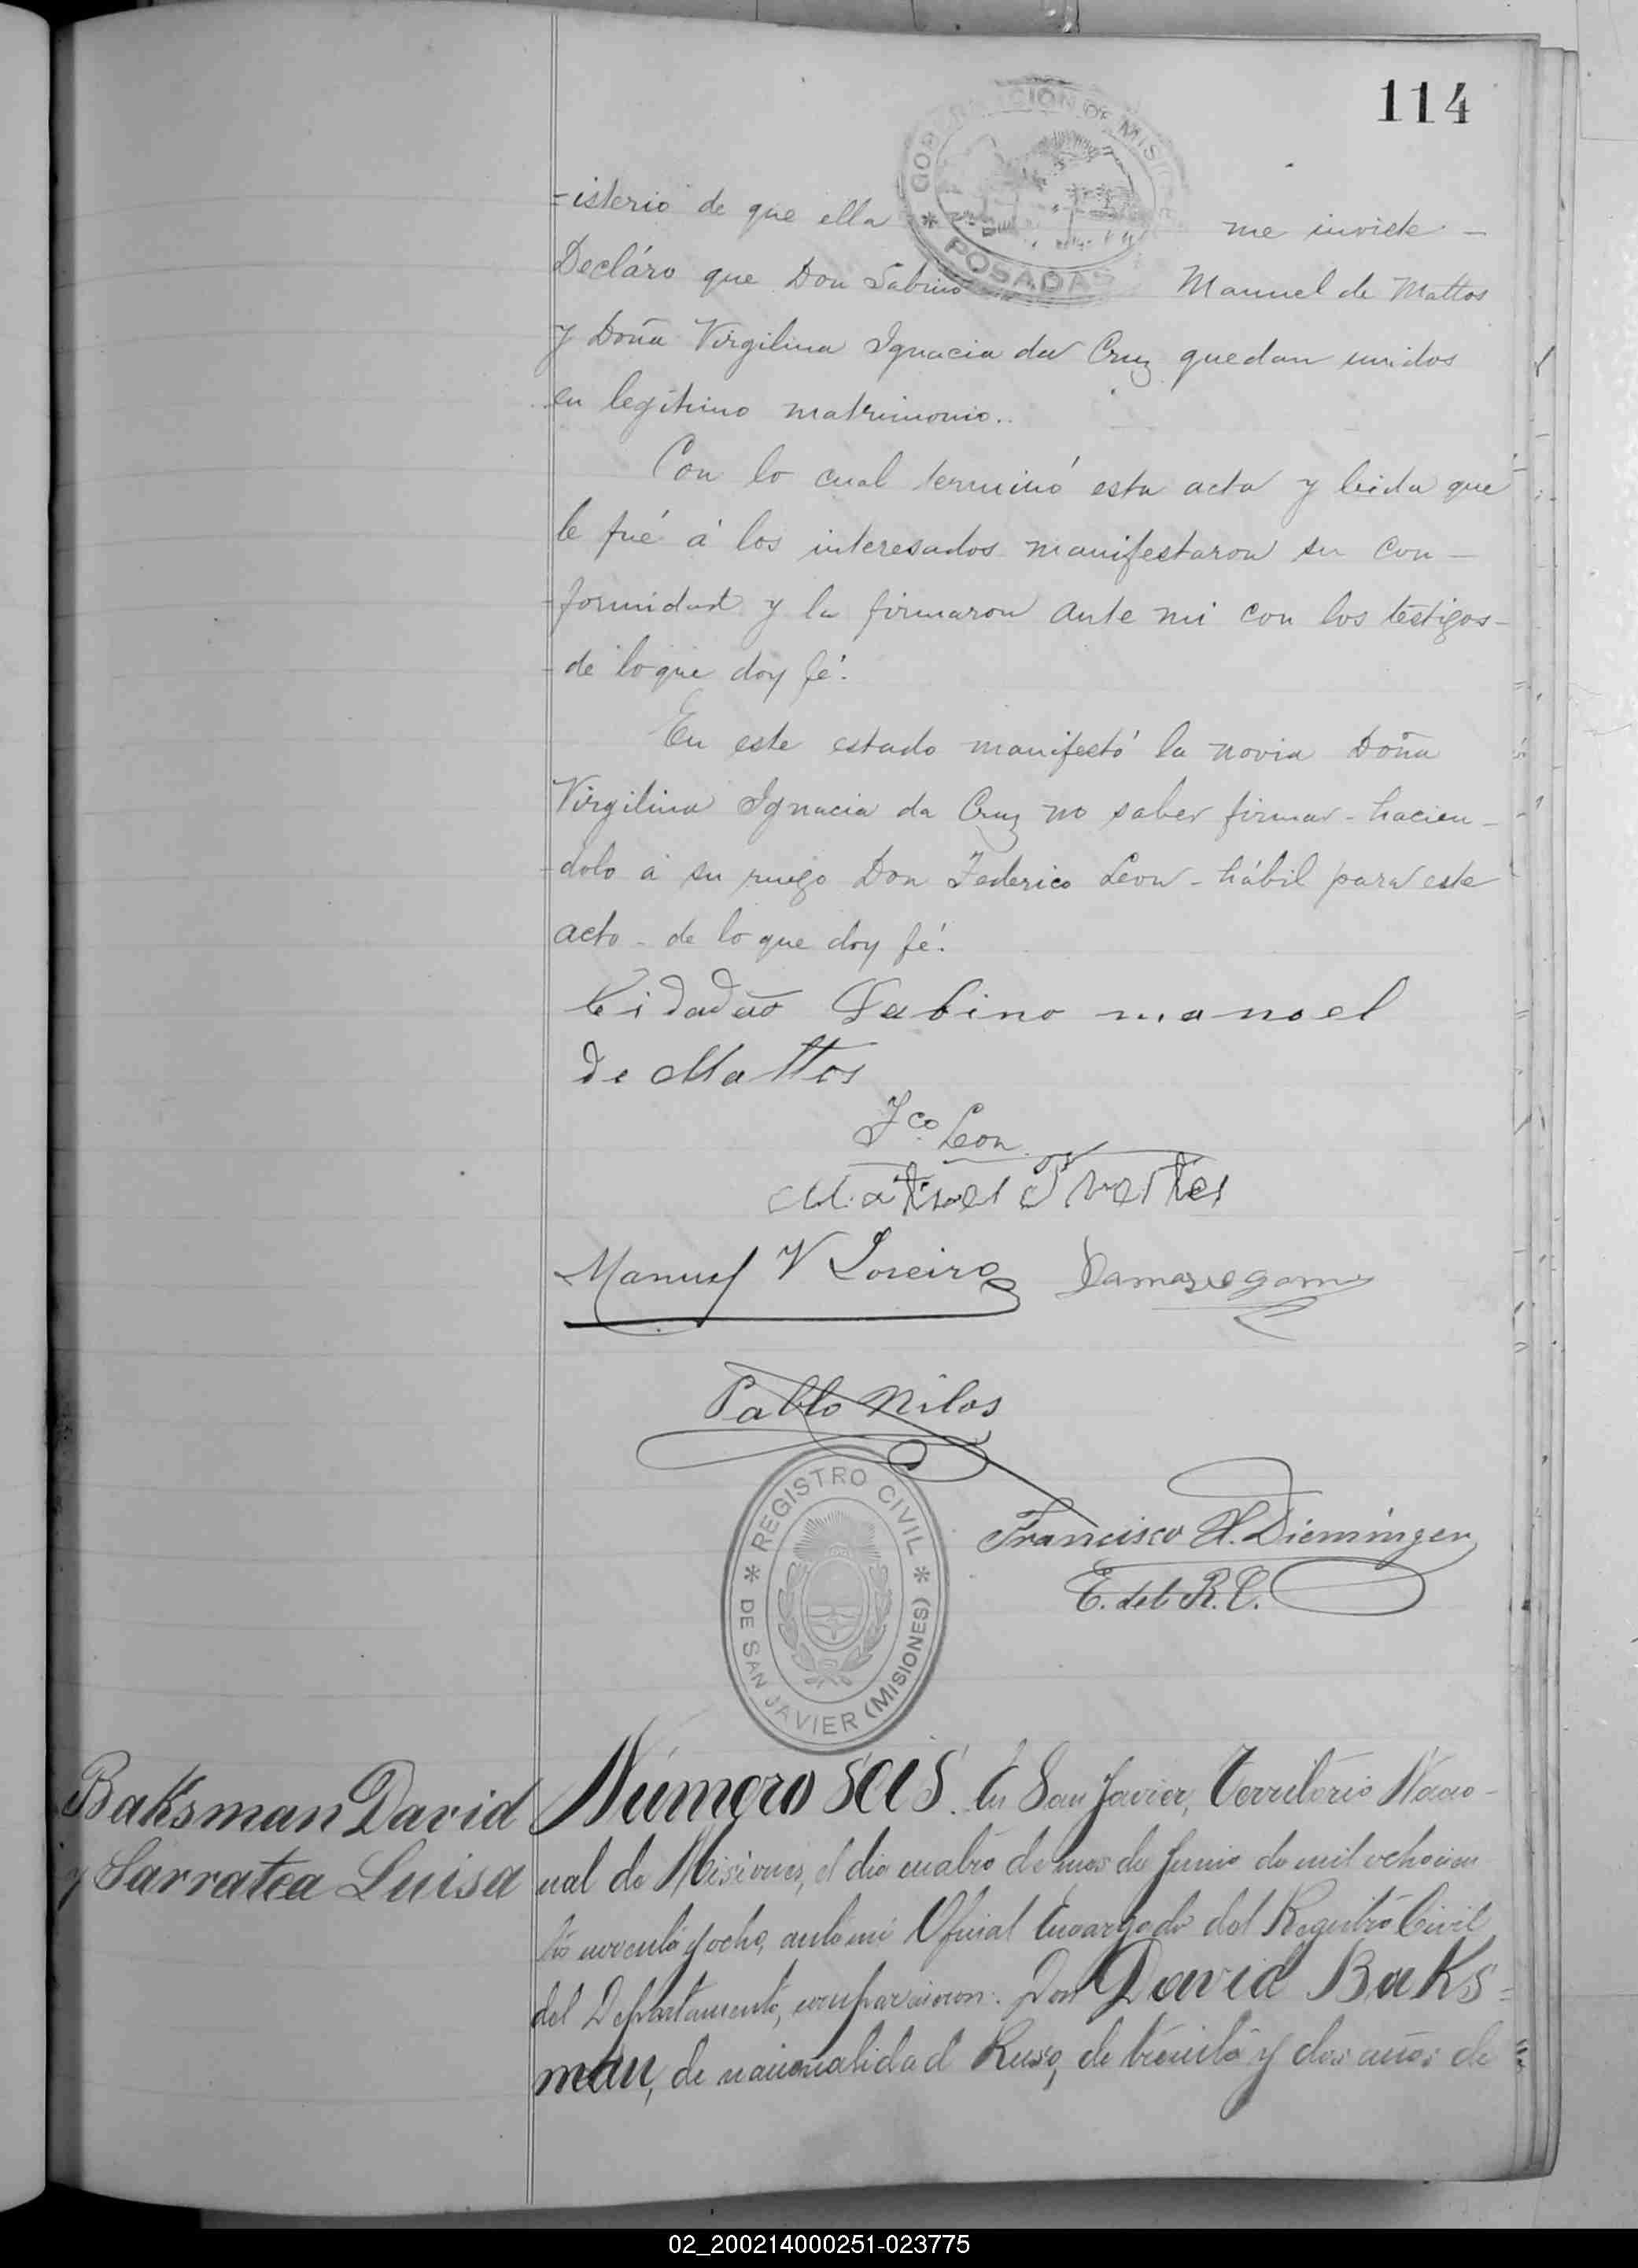 114
GOBERNACION DE MISIONES
* POSADAS
-isterio de que ella me inviste -
Decláro que Don Sabino Manuel de Mattos
y Doña Virgilina Ignacia da Cruz quedan unidos
en legitimo matrimonio..
Con lo cual terminó esta acta y leida que
le fué á los interesados manifestaron su con-
-formidad y la firmaron ante mi con los testigos-
-de lo que doy fé.
En este estado manifestó la novia Doña
Virgilina Ignacia da Cruz no saber firmar - hacien-
-dolo á su ruego Don Federico Leon - hábil para este
acto - de lo que doy fé.
Cidadão Sabino manoel
de Mattos
Fco Leon
Manuel V Loreiro
Pablo Nilos
REGISTRO CIVIL
* DE SAN JAVIER (MISIONES) *
Francisco H. Dieminger
E. del R. C.
Baksman David
y Sarratea Luisa
Número seis. En San Javier, Territorio Nacio-
nal de Misiones, el dia cuatro de mes de Junio de mil ochocien
tos noventa y ocho, ante mi Oficial Encargado del Registro Civil
del Departamento, comparecieron: Don David Baks=
man, de nacionalidad Ruso, de treinta y dos años de
02_200214000251-023775